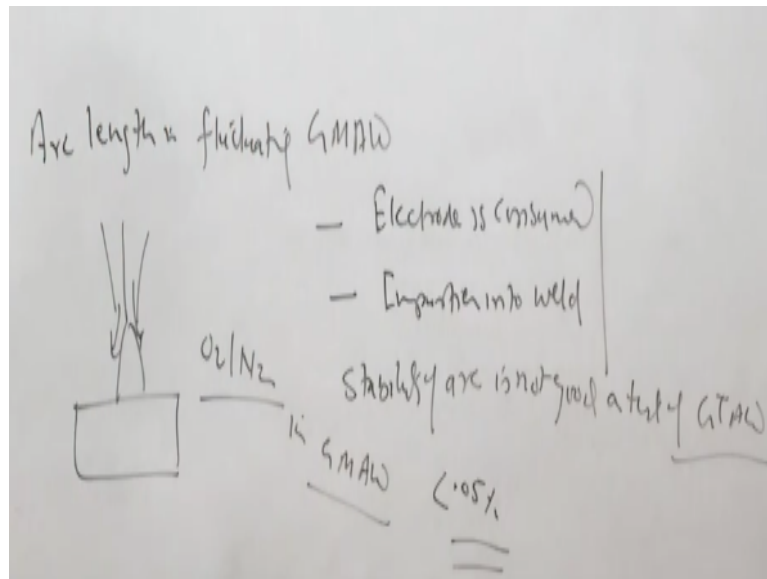 Arc length is fluctuating GMAW
- Electrode is consumed
- Impurities into weld
O2/N2
stability arc is not good as that of GTAW
is
GMAW <.05%